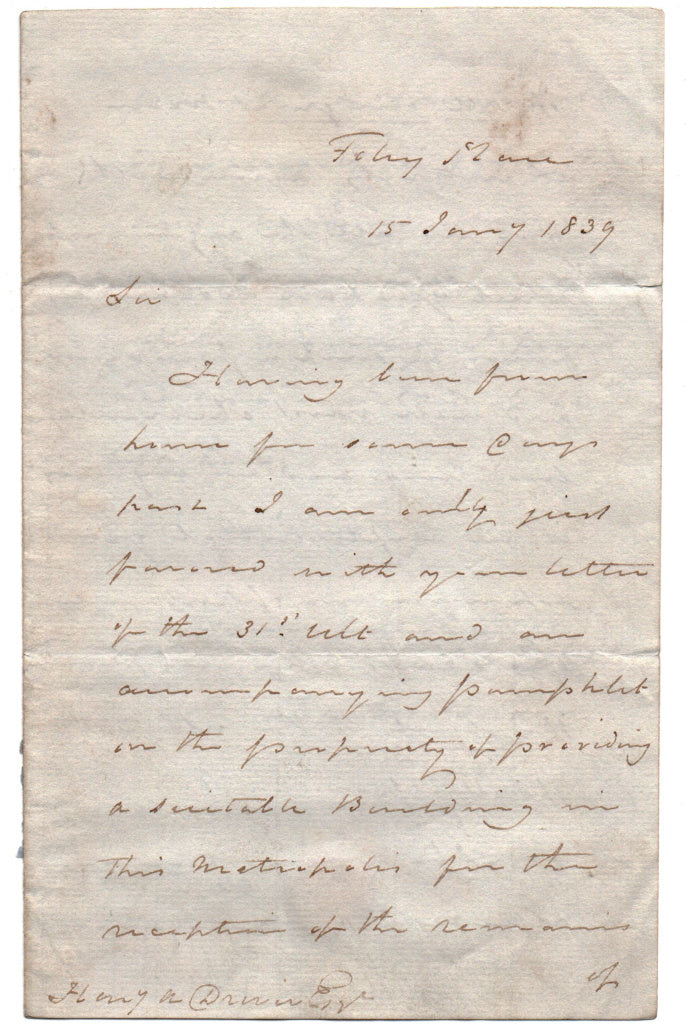 Foley Place
15 Jany 1839
Sir
Having been from
home for some days
past I am only just
favored with your letter
of the 31st. Ult and an
accompanying pamphlet
on the propriety of providing
a suitable Building in
this Metropolis for the
reception of the remains
of
Henry A Driver Esqr